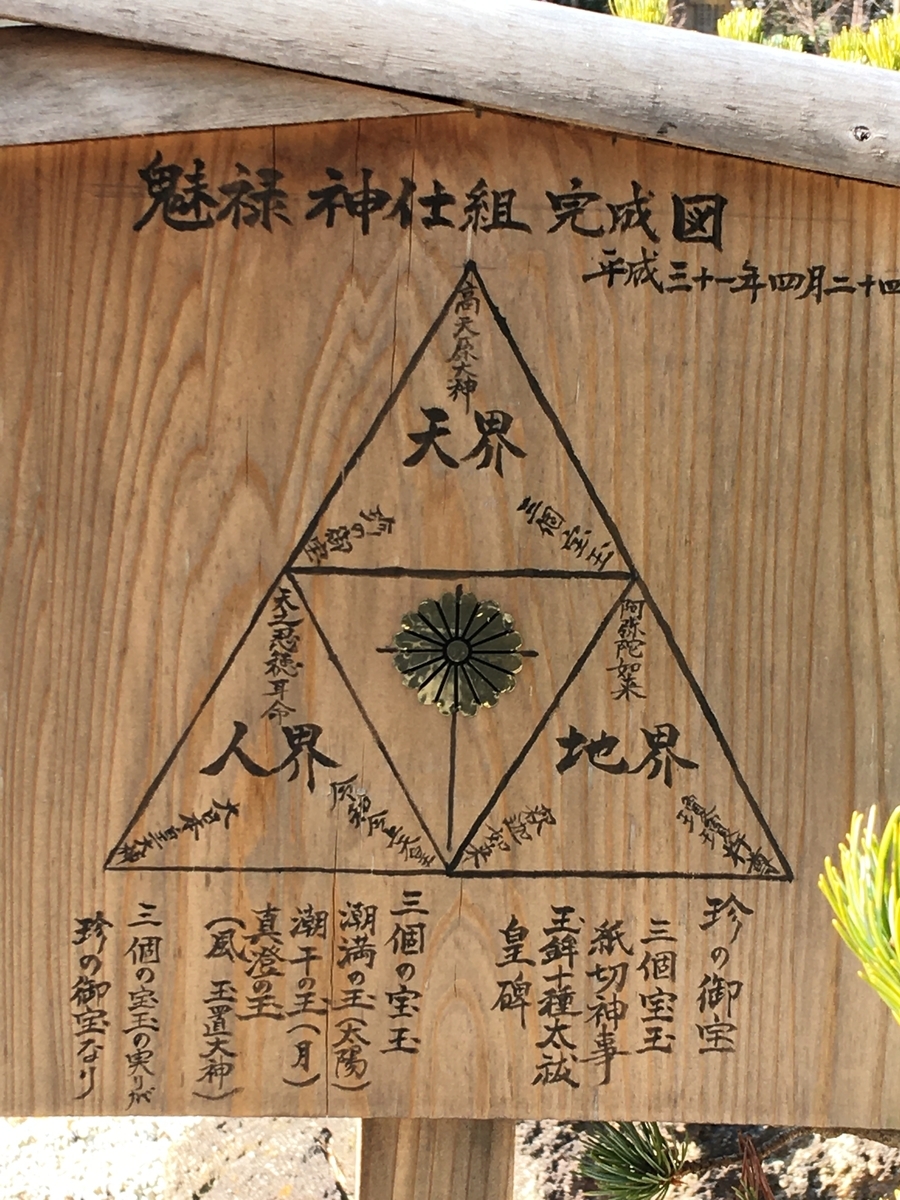 魅禄 神仕組 完成図
平成三十一年四月二十四
高天原大神
天界
珎の御宝
三個宝玉
天之忍穂耳命
人界
大日本皇大神
阿弥陀如来
地界
釈迦如来
珍の御宝
三個宝玉
紙切神事
玉鉾十種太祓
皇碑
三個の宝玉
潮満の玉(太陽)
潮干の玉(月)
真澄の玉
(風 玉置大神)
三個の宝玉の実りが
珍の御宝なり